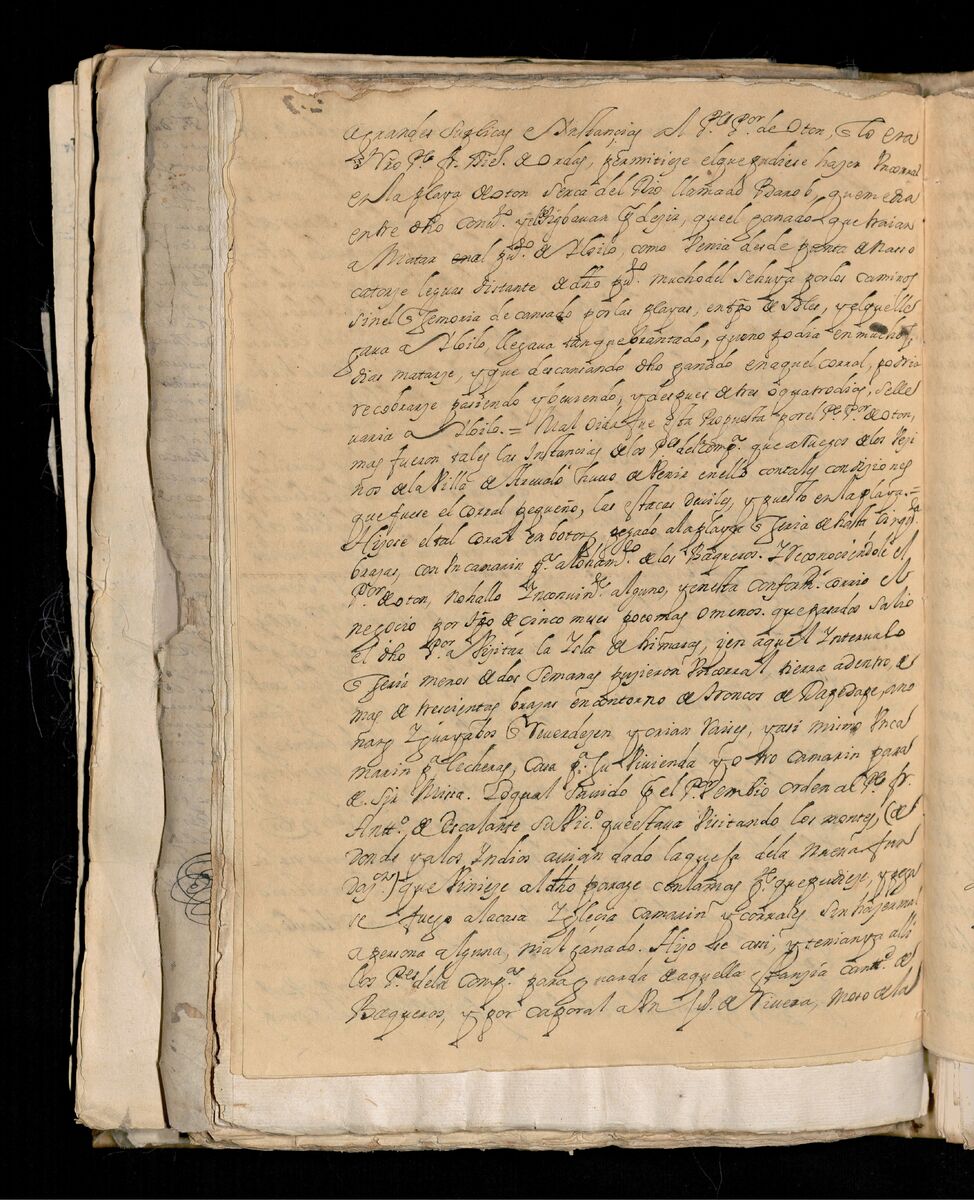 a grandes suplicas e Instancias al Pe Por de oton, q lo era
Nro Pe fr. Die.o de ordas, permitiese el que pudiese hazer Vn corral
en la playa de oton serca del Rio llamado
entre dho conu.to y el Tigbauan q dezir, que el ganado que traian
a Matar en al pu.to de Yloilo, como Venia desde punta de Nasso
catorze leguas distante de dho pu.to mucho del Se huya por los caminos
y el q lleg
gaua a Yloilo, llegava tan quebrantado, que no podia en muchos
dias matarse, y que descansando dho ganado en aquel corral, podria
recobrarse pasiendo y beuiendo, y despues de tres o quatro dias, se lle
uaria a Yloilo.= Mal oida fue esta Propuesta por el Pe Por de oton,
mas fueron tales las Instancias de los Pes de la Comp.a que a ruegos de los Vezi
nos de la Villa de Areualo huuo de Venir en ello con tales condiziones
que fuese el corral pequeño, las estacas deuiles, y puesto en la playa.=
Hizose el tal coral en boton, pegado a la playa q seria de hasta
brazas, con Vn camarin p.a aloxam.to de los Baqueros. Y Reconociendole el
Por de oton, no hallo Inconuin.te alguno, y en esta conform.d corrio el
negocio por t.po de cinco mezes poco mas o menos. que pasados salio
el dho Por a Vizitar la Isla de himaras, y en aquel Interualo
q seria menos de dos semanas pusieron Vn corral, tierra adentro, de
mas de trescientas brazas en contorno de troncos de Dapdape, ano
nas, Y Guayabos q Reuerdezen y crian Raises, y asi mismo Vn ca
marin p.a lecheras, casa p.a su Vivienda y otro camarin para
dezir Missa. Lo qual sauido p.r el Por embio orden al Pe fr.
Antt.o de Escalante su Vic.o que estaua Visitando los montes, (de
donde ya los Indios auian dado la quexa de la nueua fun
daz.on) que Viniese al dho paraje con la mas g.te que pudiese, y pega
se fuego a la casa Yglecia camarin y corrales sin hazer mal
a persona alguna, ni al ganado. Hizose asi, y tenian ya alli
los Pes de la Comp.a para guarda de aquella estanzia cant.d de
Baqueros, y por caporal a Vn fu.o de Riuera, moso de la